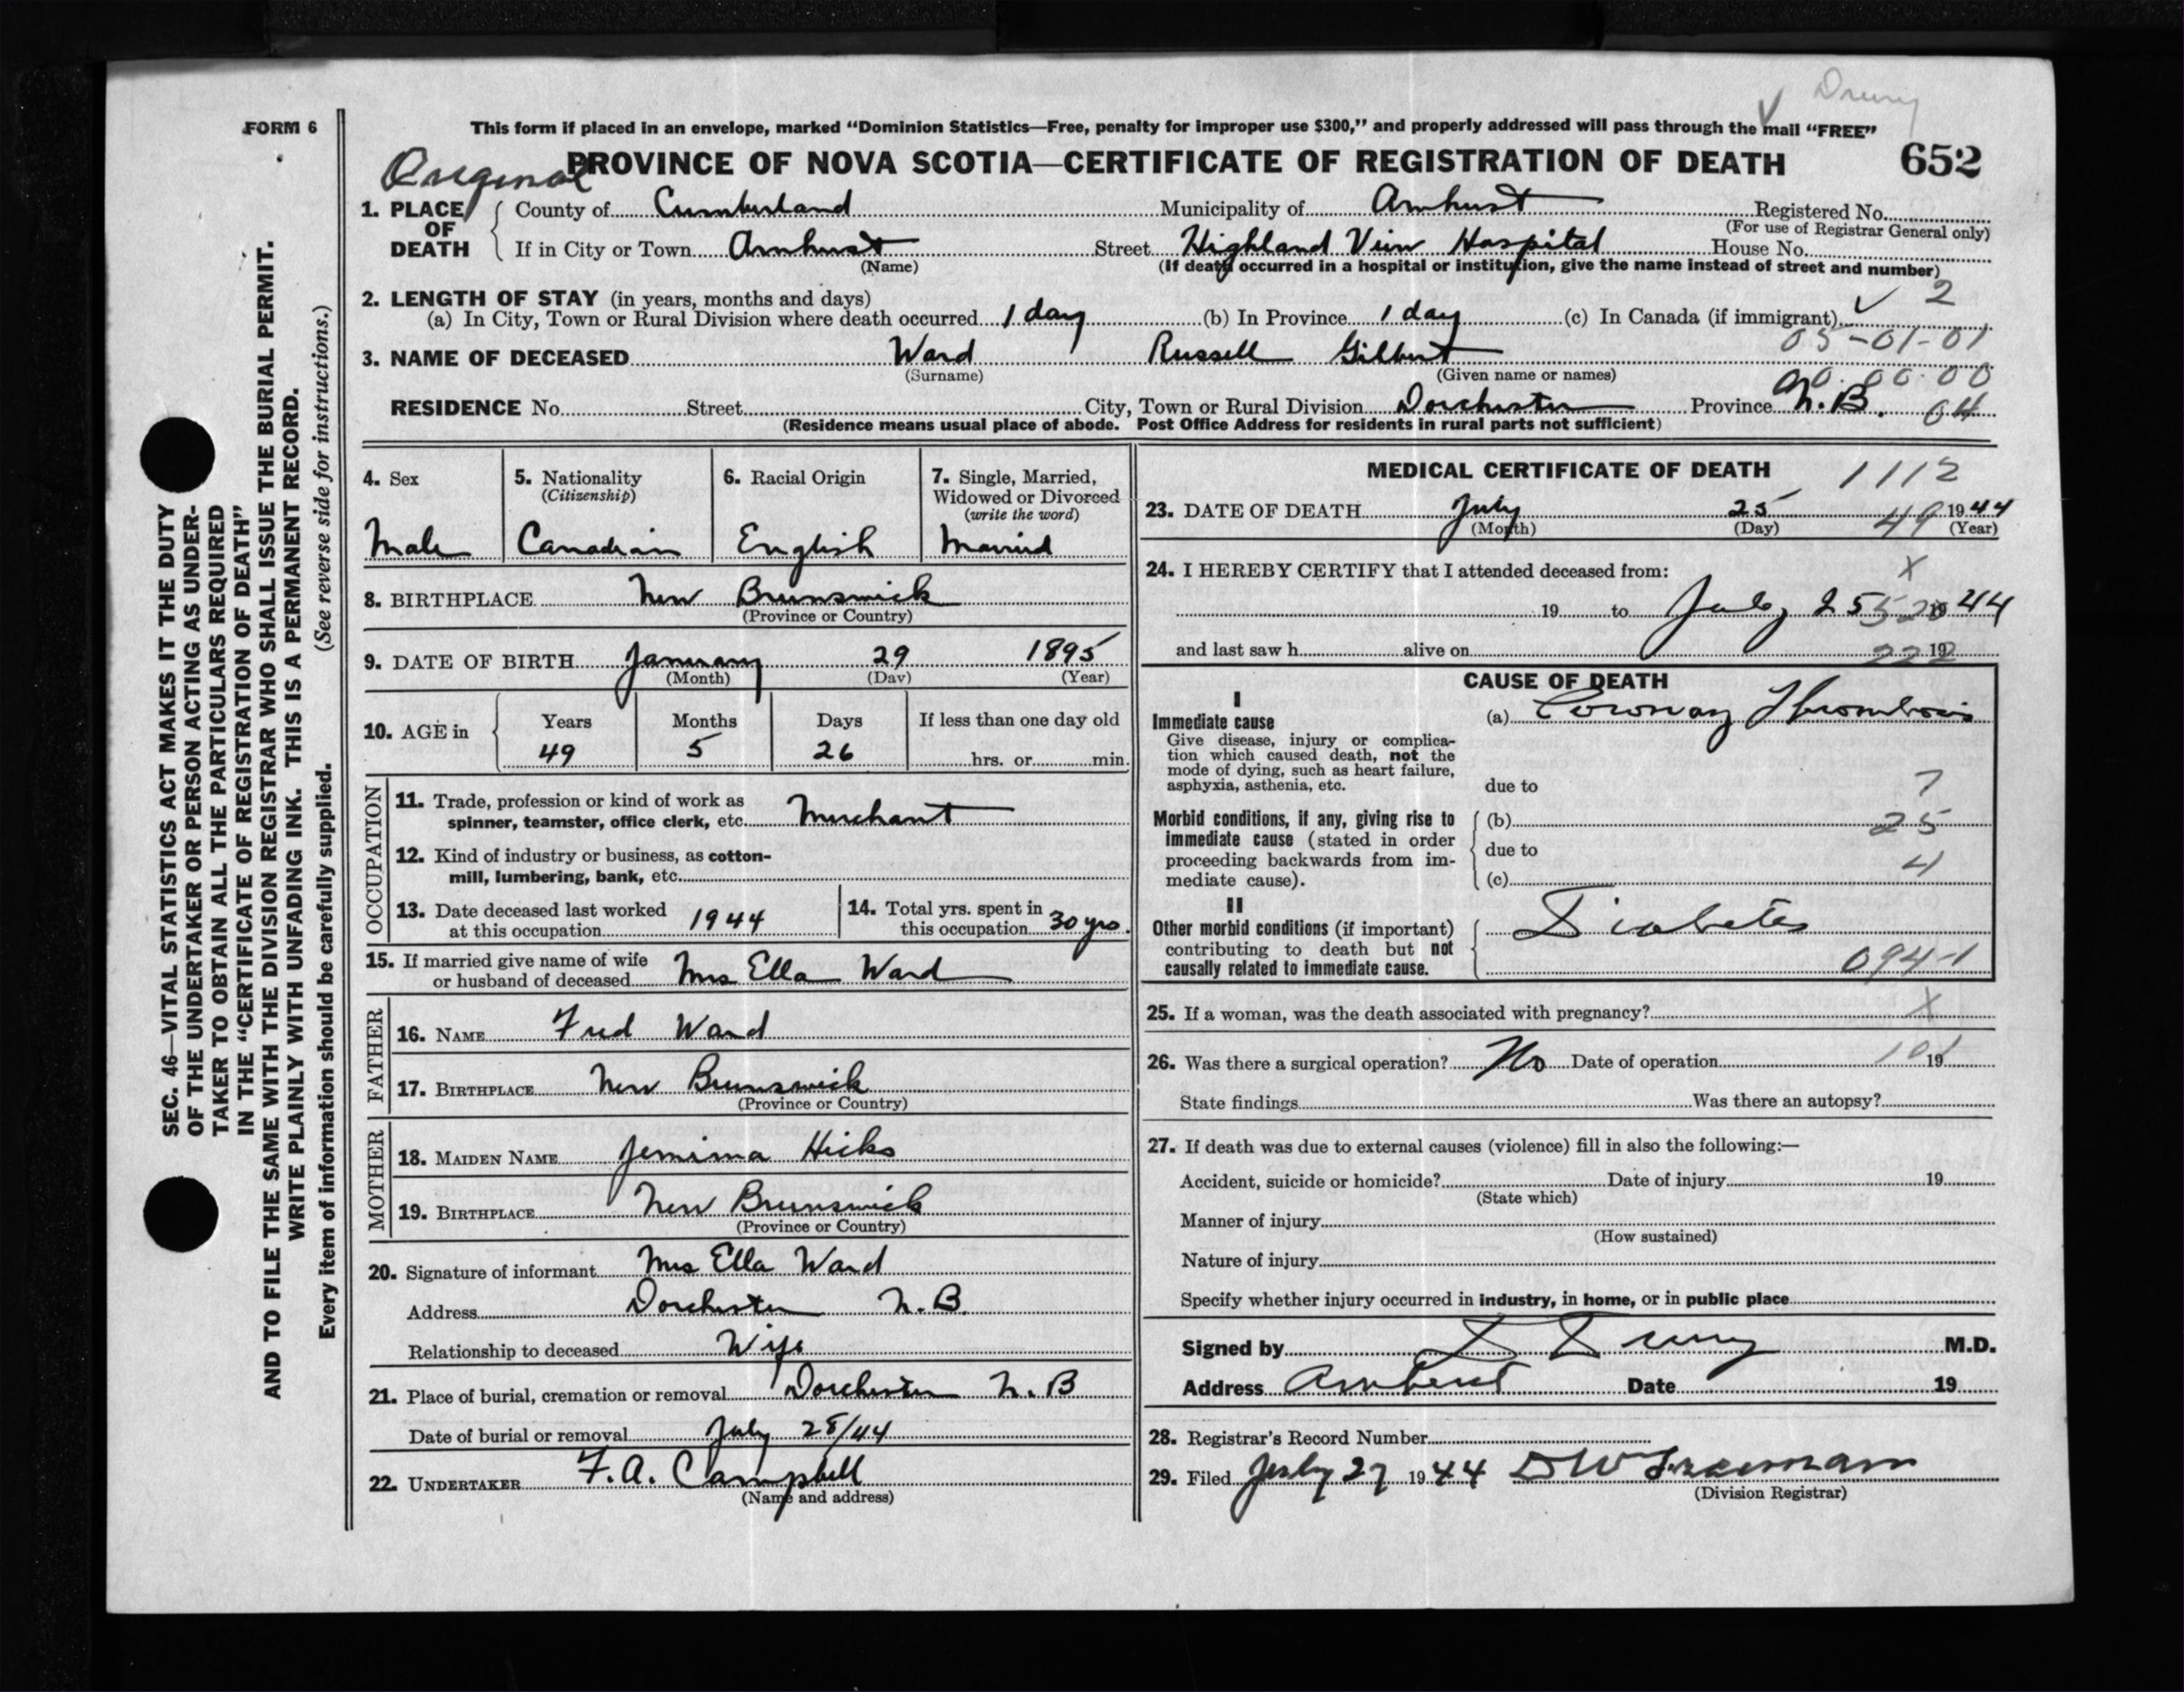 Drury
FORM 6
This form if placed in an envelope, marked "Dominion Statistics—Free, penalty for improper use $300," and properly addressed will pass through the mail "FREE"
Original
PROVINCE OF NOVA SCOTIA—CERTIFICATE OF REGISTRATION OF DEATH 652
1. PLACE OF DEATH
County of Cumberland Municipality of Amherst Registered No.
(For use of Registrar General only)
If in City or Town Amherst Street Highland View Hospital House No.
(Name) (If death occurred in a hospital or institution, give the name instead of street and number)
2. LENGTH OF STAY (in years, months and days) 2
(a) In City, Town or Rural Division where death occurred 1 day (b) In Province 1 day (c) In Canada (if immigrant)
05-01-01
3. NAME OF DECEASED Ward Russell Gilbert
(Surname) (Given name or names)
90.00.00
RESIDENCE No. Street City, Town or Rural Division Dorchester Province N.B. 04
(Residence means usual place of abode. Post Office Address for residents in rural parts not sufficient)
4. Sex
Male
5. Nationality
(Citizenship)
Canadian
6. Racial Origin
English
7. Single, Married,
Widowed or Divorced
(write the word)
Married
8. BIRTHPLACE New Brunswick
(Province or Country)
9. DATE OF BIRTH January 29 1895
(Month) (Day) (Year)
10. AGE in
Years Months Days If less than one day old
49 5 26 hrs. or min.
OCCUPATION
11. Trade, profession or kind of work as
spinner, teamster, office clerk, etc. Merchant
12. Kind of industry or business, as cotton-
mill, lumbering, bank, etc.
13. Date deceased last worked
at this occupation 1944
14. Total yrs. spent in
this occupation 30 yrs.
15. If married give name of wife
or husband of deceased Mrs Ella Ward
FATHER
16. NAME Fred Ward
17. BIRTHPLACE New Brunswick
(Province or Country)
MOTHER
18. MAIDEN NAME Jemima Hicks
19. BIRTHPLACE New Brunswick
(Province or Country)
20. Signature of informant Mrs Ella Ward
Address Dorchester N.B.
Relationship to deceased Wife
21. Place of burial, cremation or removal Dorchester N.B
Date of burial or removal July 28/44
22. UNDERTAKER F.A. Campbell
(Name and address)
MEDICAL CERTIFICATE OF DEATH 1112
23. DATE OF DEATH July 25 49 1944
(Month) (Day) (Year)
24. I HEREBY CERTIFY that I attended deceased from: X
19 to July 25 520 19 44
and last saw h alive on 19
222
CAUSE OF DEATH
I
Immediate cause
Give disease, injury or complica-
tion which caused death, not the
mode of dying, such as heart failure,
asphyxia, asthenia, etc.
(a) Coronary Thrombosis
due to 7
Morbid conditions, if any, giving rise to
immediate cause (stated in order
proceeding backwards from im-
mediate cause).
(b) 25
due to 4
(c)
II
Other morbid conditions (if important)
contributing to death but not
causally related to immediate cause.
Diabetes
094-1
25. If a woman, was the death associated with pregnancy? X
26. Was there a surgical operation? No Date of operation 101 19
State findings Was there an autopsy?
27. If death was due to external causes (violence) fill in also the following:—
Accident, suicide or homicide? Date of injury 19
(State which)
Manner of injury
(How sustained)
Nature of injury
Specify whether injury occurred in industry, in home, or in public place
Signed by D Drury M.D.
Address Amherst Date 19
28. Registrar's Record Number
29. Filed July 27 1944 DW Freeman
(Division Registrar)
SEC. 46—VITAL STATISTICS ACT MAKES IT THE DUTY
OF THE UNDERTAKER OR PERSON ACTING AS UNDER-
TAKER TO OBTAIN ALL THE PARTICULARS REQUIRED
IN THE "CERTIFICATE OF REGISTRATION OF DEATH"
AND TO FILE THE SAME WITH THE DIVISION REGISTRAR WHO SHALL ISSUE THE BURIAL PERMIT.
WRITE PLAINLY WITH UNFADING INK. THIS IS A PERMANENT RECORD.
Every item of information should be carefully supplied. (See reverse side for instructions.)